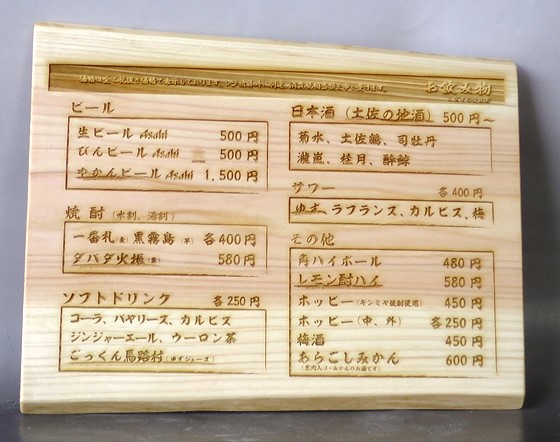 お飲み物
ビール
生ビール Asahi 500円
びんビール Asahi 500円
やかんビール Asahi 1,500円
焼酎（水割、湯割）
一番札（麦）黒霧島（芋） 各400円
ダバダ火振（栗） 580円
ソフトドリンク 各250円
コーラ、バヤリース、カルピス
ジンジャーエール、ウーロン茶
ごっくん馬路村（ゆずジュース）
日本酒（土佐の地酒） 500円～
菊水、土佐鶴、司牡丹
瀧嵐、桂月、酔鯨
サワー 各400円
ゆず、ラフランス、カルピス、梅
その他
角ハイボール 480円
レモン酎ハイ 580円
ホッピー（キンミヤ焼酎使用） 450円
ホッピー（中、外） 各250円
梅酒 450円
あらごしみかん 600円
（果肉入り・みかんのお酒です）